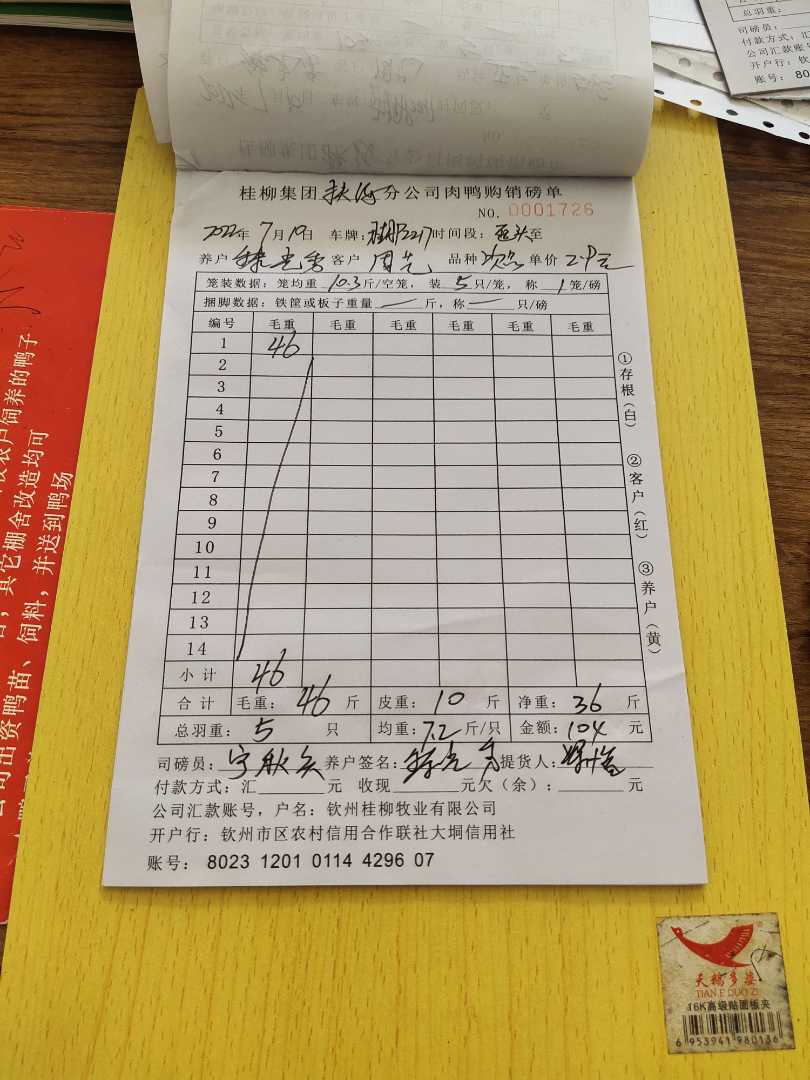 总羽重：
司磅员：
付款方式：汇
公司汇款账号
开户行：钦
账号： 80
桂柳集团 分公司肉鸭购销磅单
NO. 0001726
2022年 7月19日 车牌： 时间段： 至
养户 客户 品种 单价
笼装数据：笼均重 10.3 斤/空笼，装 5 只/笼，称 1 笼/磅
捆脚数据：铁筐或板子重量 — 斤，称 — 只/磅
编号 毛重 毛重 毛重 毛重 毛重 毛重
1 46
2
3
4
5
6
7
8
9
10
11
12
13
14
小计 46
合计 毛重：46 斤 皮重：10 斤 净重：36 斤
总羽重：5 只 均重：7.2 斤/只 金额：104 元
司磅员： 养户签名： 提货人：
付款方式：汇 元 收现 元欠（余）： 元
公司汇款账号，户名：钦州桂柳牧业有限公司
开户行：钦州市区农村信用合作联社大垌信用社
账号： 8023 1201 0114 4296 07
①存根（白）
②客户（红）
③养户（黄）
农户饲养的鸭子
，其它棚舍改造均可
公司出资鸭苗、饲料，并送到鸭场
天楹多姿
TIAN E DUO ZI
16K高级贴面板夹
6 953941 980136